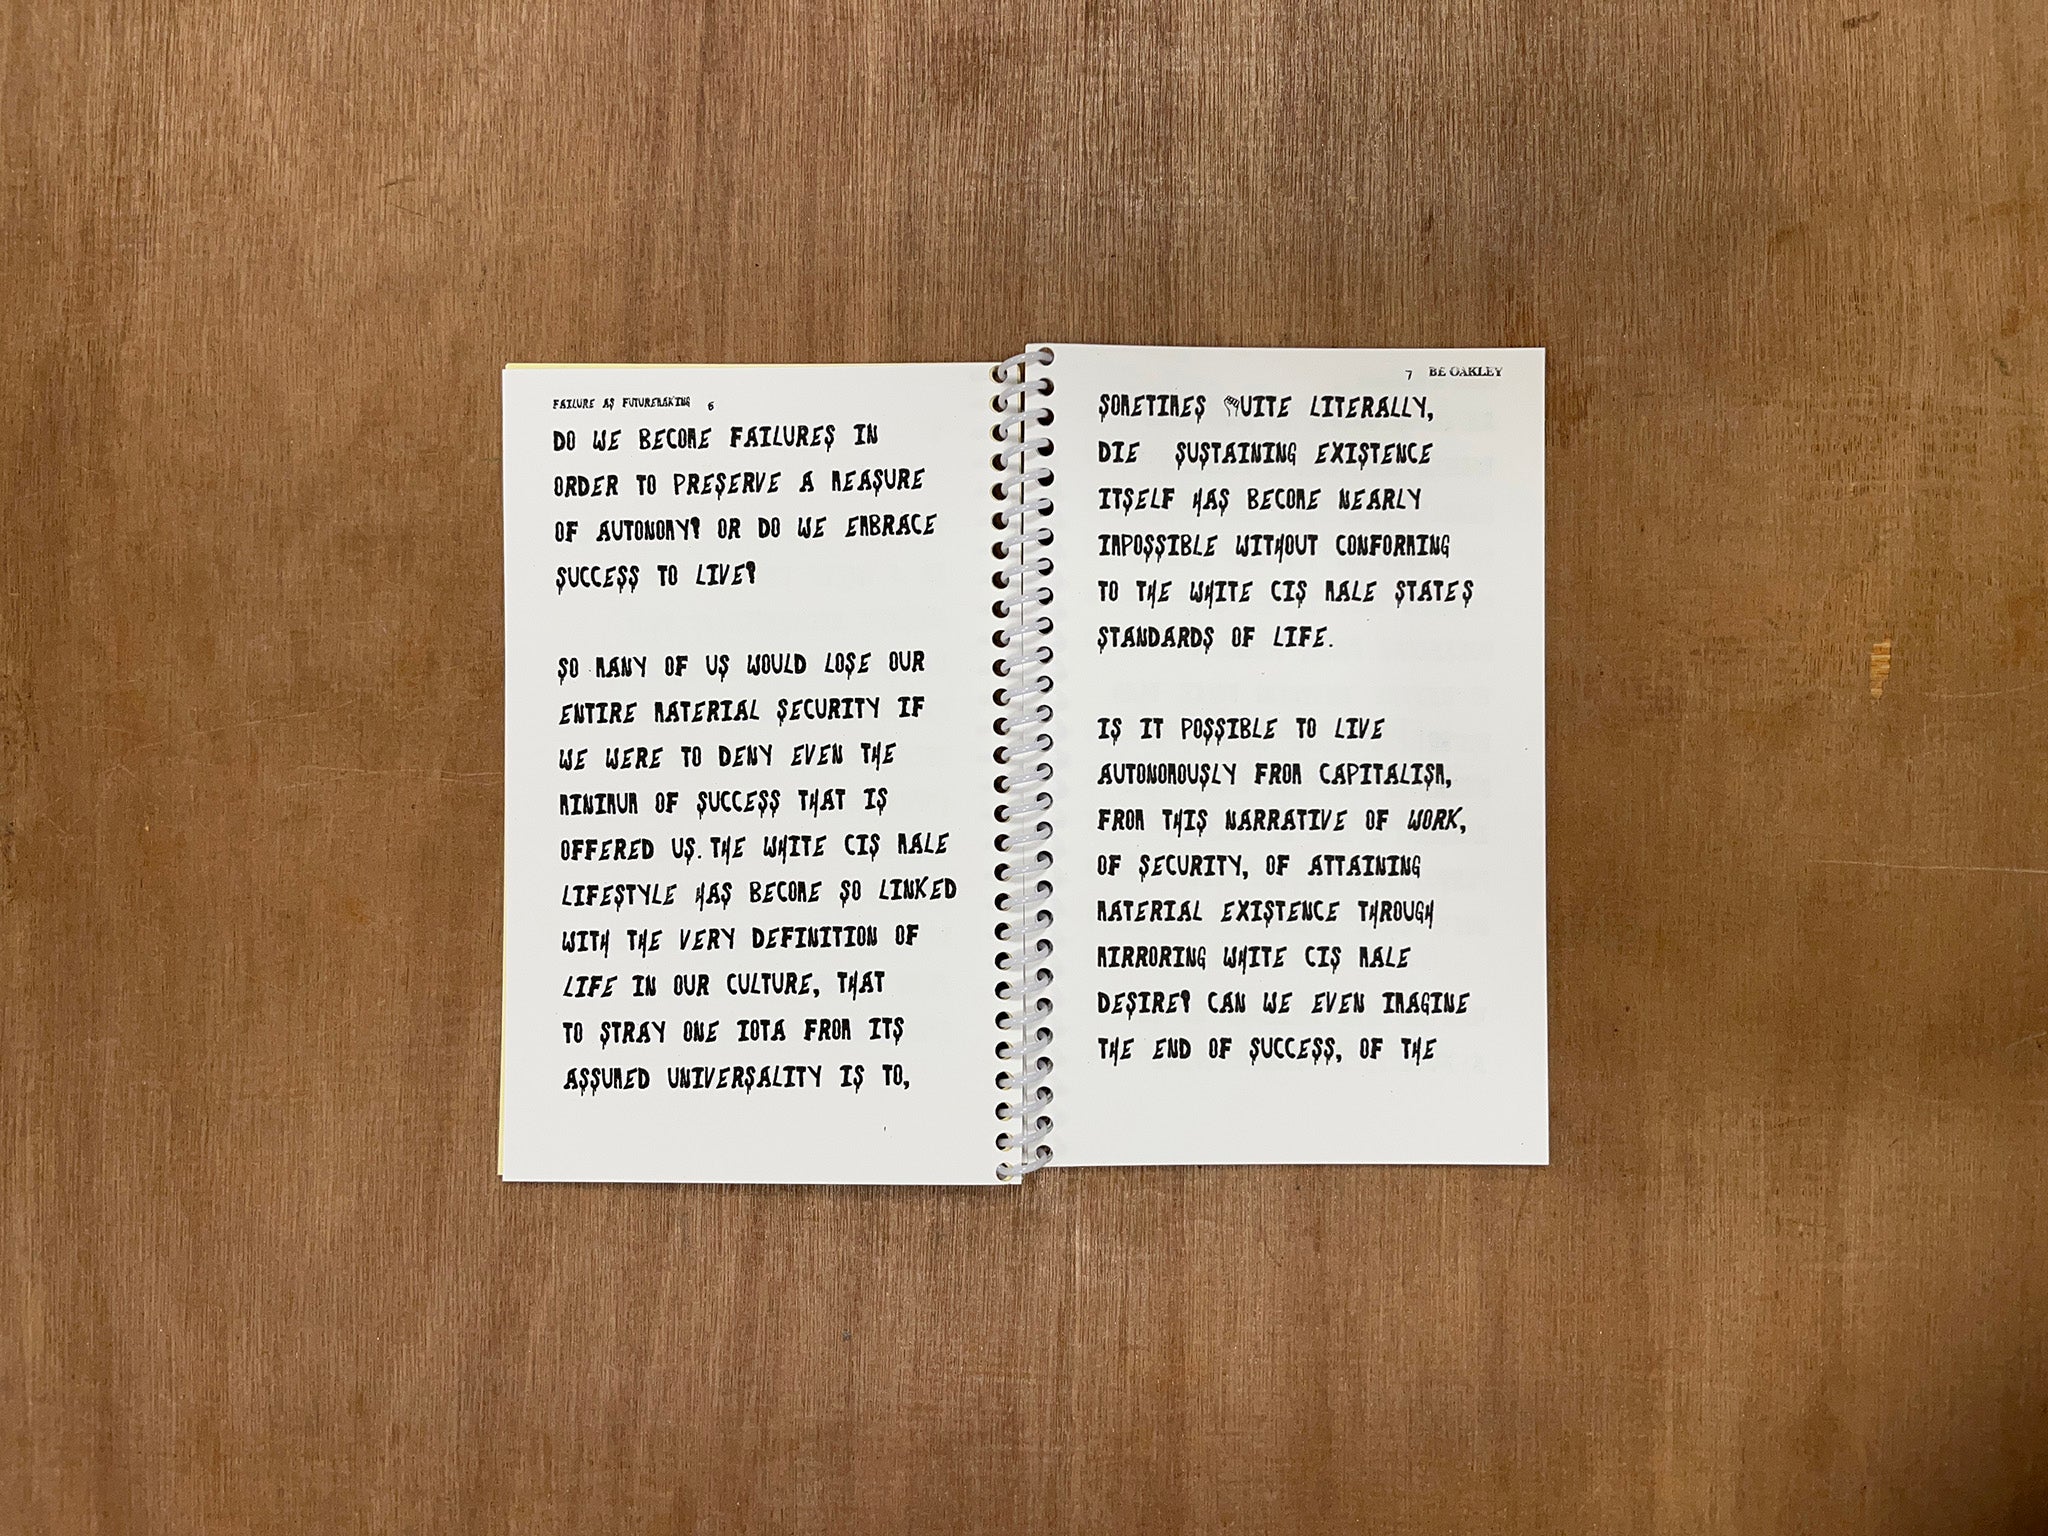 FAILURE AS FUTUREMAKING 6
DO WE BECOME FAILURES IN
ORDER TO PRESERVE A MEASURE
OF AUTONOMY? OR DO WE EMBRACE
SUCCESS TO LIVE?
SO MANY OF US WOULD LOSE OUR
ENTIRE MATERIAL SECURITY IF
WE WERE TO DENY EVEN THE
MINIMUM OF SUCCESS THAT IS
OFFERED US. THE WHITE CIS MALE
LIFESTYLE HAS BECOME SO LINKED
WITH THE VERY DEFINITION OF
LIFE IN OUR CULTURE, THAT
TO STRAY ONE IOTA FROM ITS
ASSUMED UNIVERSALITY IS TO,
7 BE OAKLEY
SOMETIMES QUITE LITERALLY,
DIE SUSTAINING EXISTENCE
ITSELF HAS BECOME NEARLY
IMPOSSIBLE WITHOUT CONFORMING
TO THE WHITE CIS MALE STATES
STANDARDS OF LIFE.
IS IT POSSIBLE TO LIVE
AUTONOMOUSLY FROM CAPITALISM,
FROM THIS NARRATIVE OF WORK,
OF SECURITY, OF ATTAINING
MATERIAL EXISTENCE THROUGH
MIRRORING WHITE CIS MALE
DESIRE? CAN WE EVEN IMAGINE
THE END OF SUCCESS, OF THE